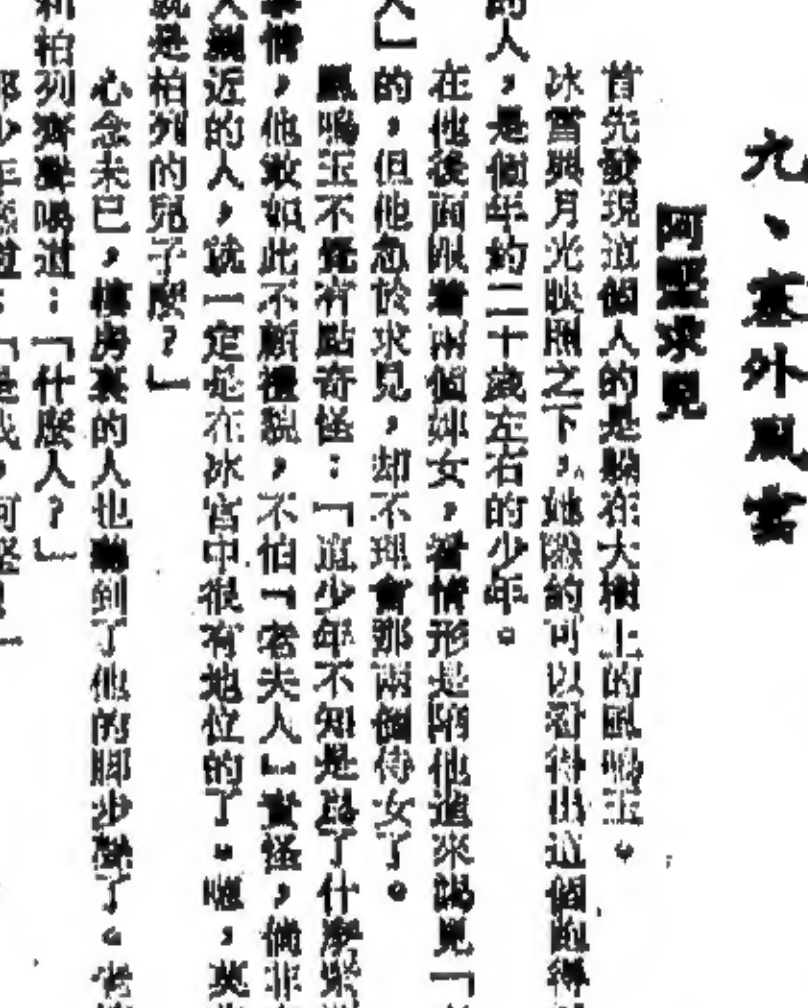 九、塞外風雲
阿堅求見
首先發現這個人的是躲在大樹上的鳳鳴玉。
冰雪與月光映照之下，她隱約可以看得出這個跑得
的人，是個年約二十歲左右的少年。
在他後面跟着兩個婢女，看情形是陪他進來謁見「
人」的，但他急於求見，却不理會那兩個侍女了。
鳳鳴玉不覺有點奇怪：「這少年不知是爲了什麼
事情，他敢如此不顧禮貌，不怕「老夫人」責怪，倘非
人親近的人，就一定是在冰宮中很有地位的了。嗯，莫
就是柏列的兒子麼？」
心念未已，樓房裏的人也聽到了他的脚步聲了。
和柏列齊聲喝道：「什麼人？」
那少年應道：「是我，阿堅！」